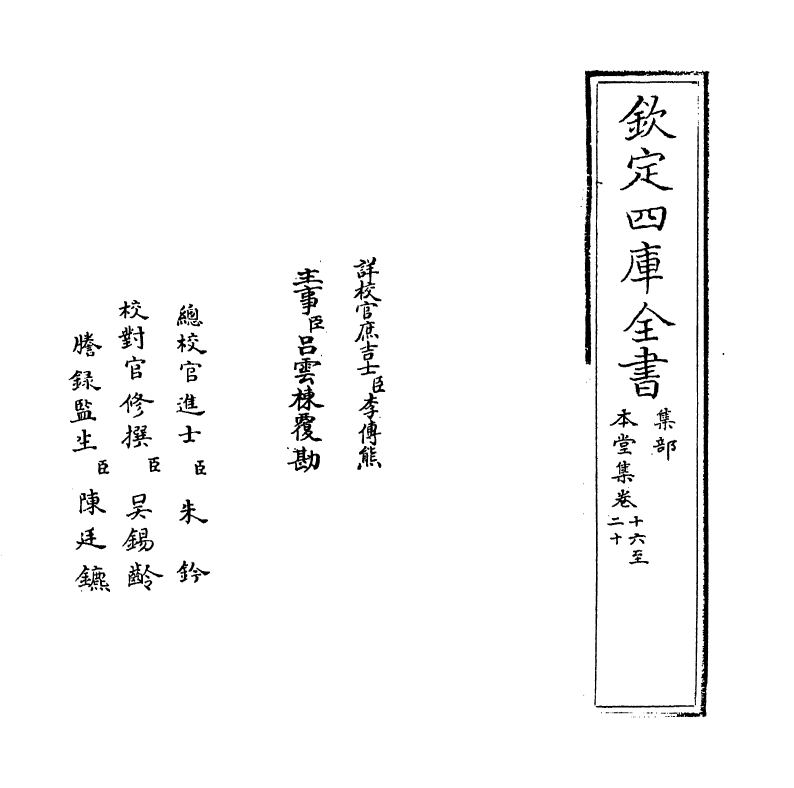 欽定四庫全書
集部
本堂集卷十六至二十
詳校官庶吉士臣李傳熊
主事臣呂雲棟覆勘
總校官進士臣朱鈐
校對官修撰臣吳錫齡
謄錄監生臣陳廷鑣